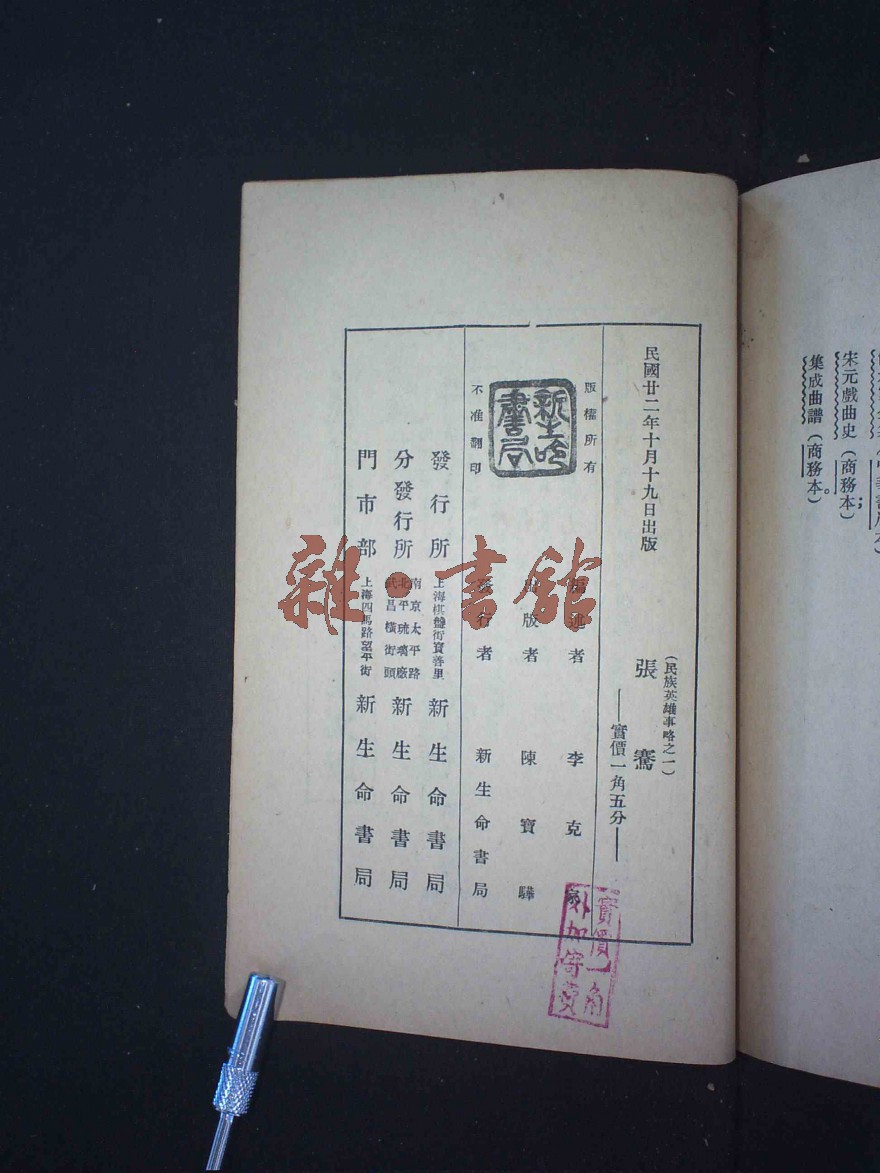 宋元戲曲史(商務本);
集成曲譜(商務本)。
民國廿二年十月十九日出版
(民族英雄事略之一)
張騫
——實價一角五分——
版權所有
新生命書局
不准翻印
編述者 李克家
出版者 陳寶驊
發行者 新生命書局
發行所 上海棋盤街寶善里 新生命書局
分發行所 南京太平路 北平琉璃廠 武昌橫街頭 新生命書局
門市部 上海四馬路望平街 新生命書局
實價一角
外加寄費
雜·書館